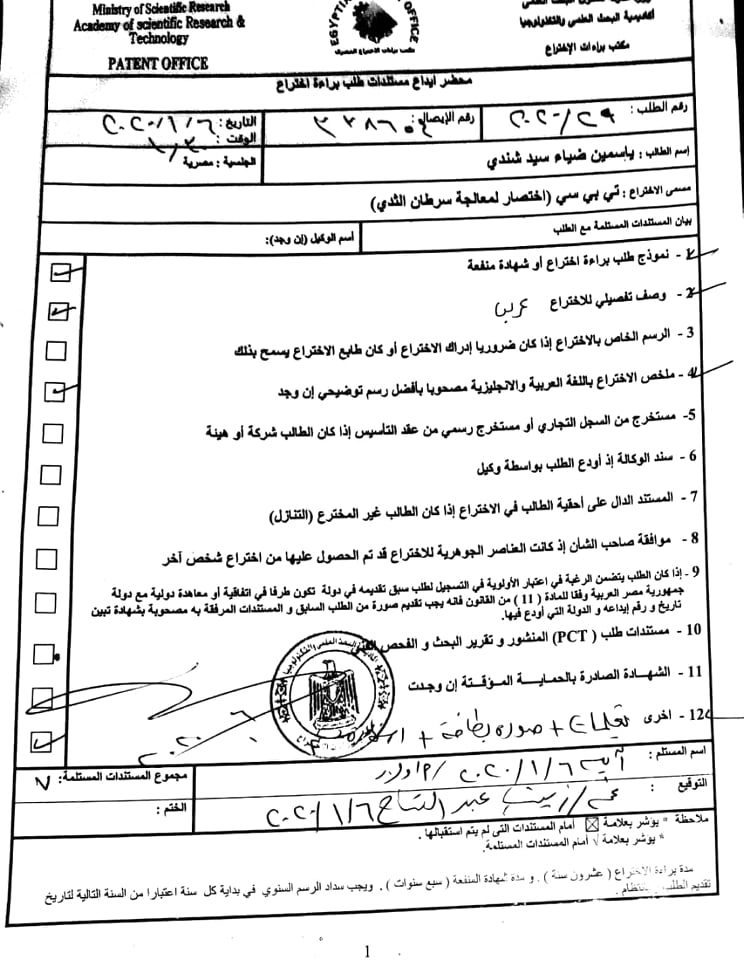 Ministry of Scientific Research
Academy of scientific Research &
Technology
PATENT OFFICE
EGYPTIAN OFFICE
أكاديمية البحث العلمى والتكنولوجيا
مكتب براءات الإختراع
محضر ايداع مستندات طلب براءة اختراع
رقم الطلب : ٢٠٢٠/٢٩
رقم الإيصال :
التاريخ : ٢٠٢٠/١/٦
الوقت :
إسم الطالب : ياسمين ضياء سيد شندي
الجنسية : مصرية
مسمى الاختراع : تي بي سي (اختصار لمعالجة سرطان الثدي)
بيان المستندات المستلمة مع الطلب
اسم الوكيل (إن وجد):
1- نموذج طلب براءة اختراع أو شهادة منفعة
2- وصف تفصيلي للاختراع عربي
3 - الرسم الخاص بالاختراع إذا كان ضروريا إدراك الاختراع أو كان طابع الاختراع يسمح بذلك
4- ملخص الاختراع باللغة العربية والانجليزية مصحوبا بأفضل رسم توضيحي إن وجد
5- مستخرج من السجل التجاري أو مستخرج رسمي من عقد التأسيس إذا كان الطالب شركة أو هيئة
6 - سند الوكالة إذ أودع الطلب بواسطة وكيل
7 - المستند الدال على أحقية الطالب في الاختراع إذا كان الطالب غير المخترع (التنازل)
8 - موافقة صاحب الشأن إذ كانت العناصر الجوهرية للاختراع قد تم الحصول عليها من اختراع شخص آخر
9 - إذا كان الطلب يتضمن الرغبة في اعتبار الأولوية في التسجيل لطلب سبق تقديمه في دولة تكون طرفا في اتفاقية أو معاهدة دولية مع دولة
جمهورية مصر العربية وفقا للمادة ( 11 ) من القانون فانه يجب تقديم صورة من الطلب السابق و المستندات المرفقة به مصحوبة بشهادة تبين
تاريخ و رقم إيداعه و الدولة التي أودع فيها.
10 - مستندات طلب ( PCT) المنشور و تقرير البحث و الفحص الفني
11 - الشهادة الصادرة بالحماية المؤقتة إن وجدت
12- اخرى + صورة بطاقة +
اسم المستلم : ٢٠٢٠/١/٦
مجموع المستندات المستلمة: ٧
التوقيع : زينب عبد الفتاح ٢٠٢٠/١/٦
الختم :
ملاحظة * يؤشر بعلامة ☒ أمام المستندات التى لم يتم استقبالها .
* يؤشر بعلامة √ أمام المستندات المستلمة.
مدة براءة الاختراع ( عشرون سنة ) . و مدة شهادة المنفعة ( سبع سنوات ) . ويجب سداد الرسم السنوي في بداية كل سنة اعتبارا من السنة التالية لتاريخ
تقديم الطلب بانتظام .
1